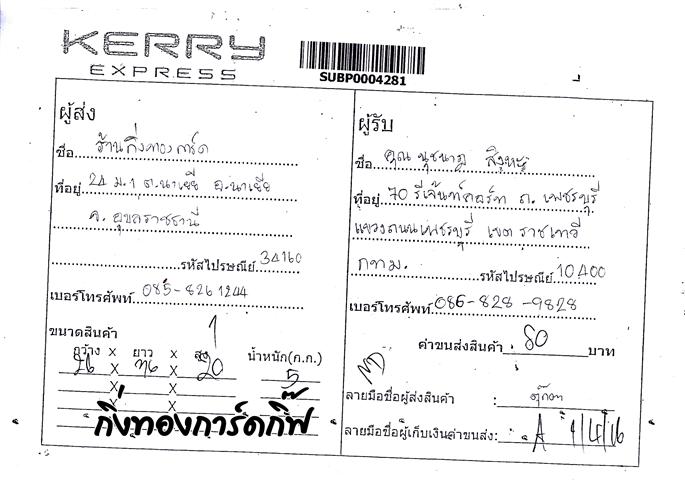 KERRY
EXPRESS
SUBP0004281
ผู้ส่ง
ชื่อ ร้านกิ่งทองการ์ด
ที่อยู่ 24 ม.1 ต.นาเยีย อ.นาเยีย
จ. อุบลราชธานี
รหัสไปรษณีย์ 34160
เบอร์โทรศัพท์ 085-826 1244
ขนาดสินค้า 1
กว้าง x ยาว x สูง น้ำหนัก(ก.ก.)
x x 20 5
x x
x
กิ่งทองการ์ดกิ๊ฟ
ผู้รับ
ชื่อ คุณ นุชนาฎ
ที่อยู่ 70 รีเจ้นท์คอร์ท ถ. เพชรบุรี
แขวงถนนเพชรบุรี เขต ราชเทวี
กทม. รหัสไปรษณีย์ 10400
เบอร์โทรศัพท์ 086-828-9828
ค่าขนส่งสินค้า 80 บาท
ลายมือชื่อผู้ส่งสินค้า :
ลายมือชื่อผู้เก็บเงินค่าขนส่ง: A 1/4/16